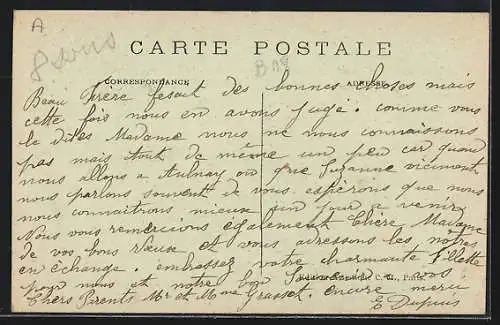 A
8 sous
CARTE POSTALE
B 18
CORRESPONDANCE
ADRESSE
Beau Frère fesait des bonnes choses mais
cette fois nous en avons jugé. comme vous
le dites Madame nous ne nous connaissons
pas mais tout de même un peu car quand
nous allons a Aulnay ou que Suzanne viennent
nous parlons souvent de vous. esperons que nous
nous connaitrons mieux un jour a venir
Nous vous remercions également Chère Madame
de vos bons vœux et vous adressons les nôtres
en échange. embrassez votre charmante fillette
pour nous et notre bon
Chers Parents Mr et Mme Grasset. encore merci
E Dupuis